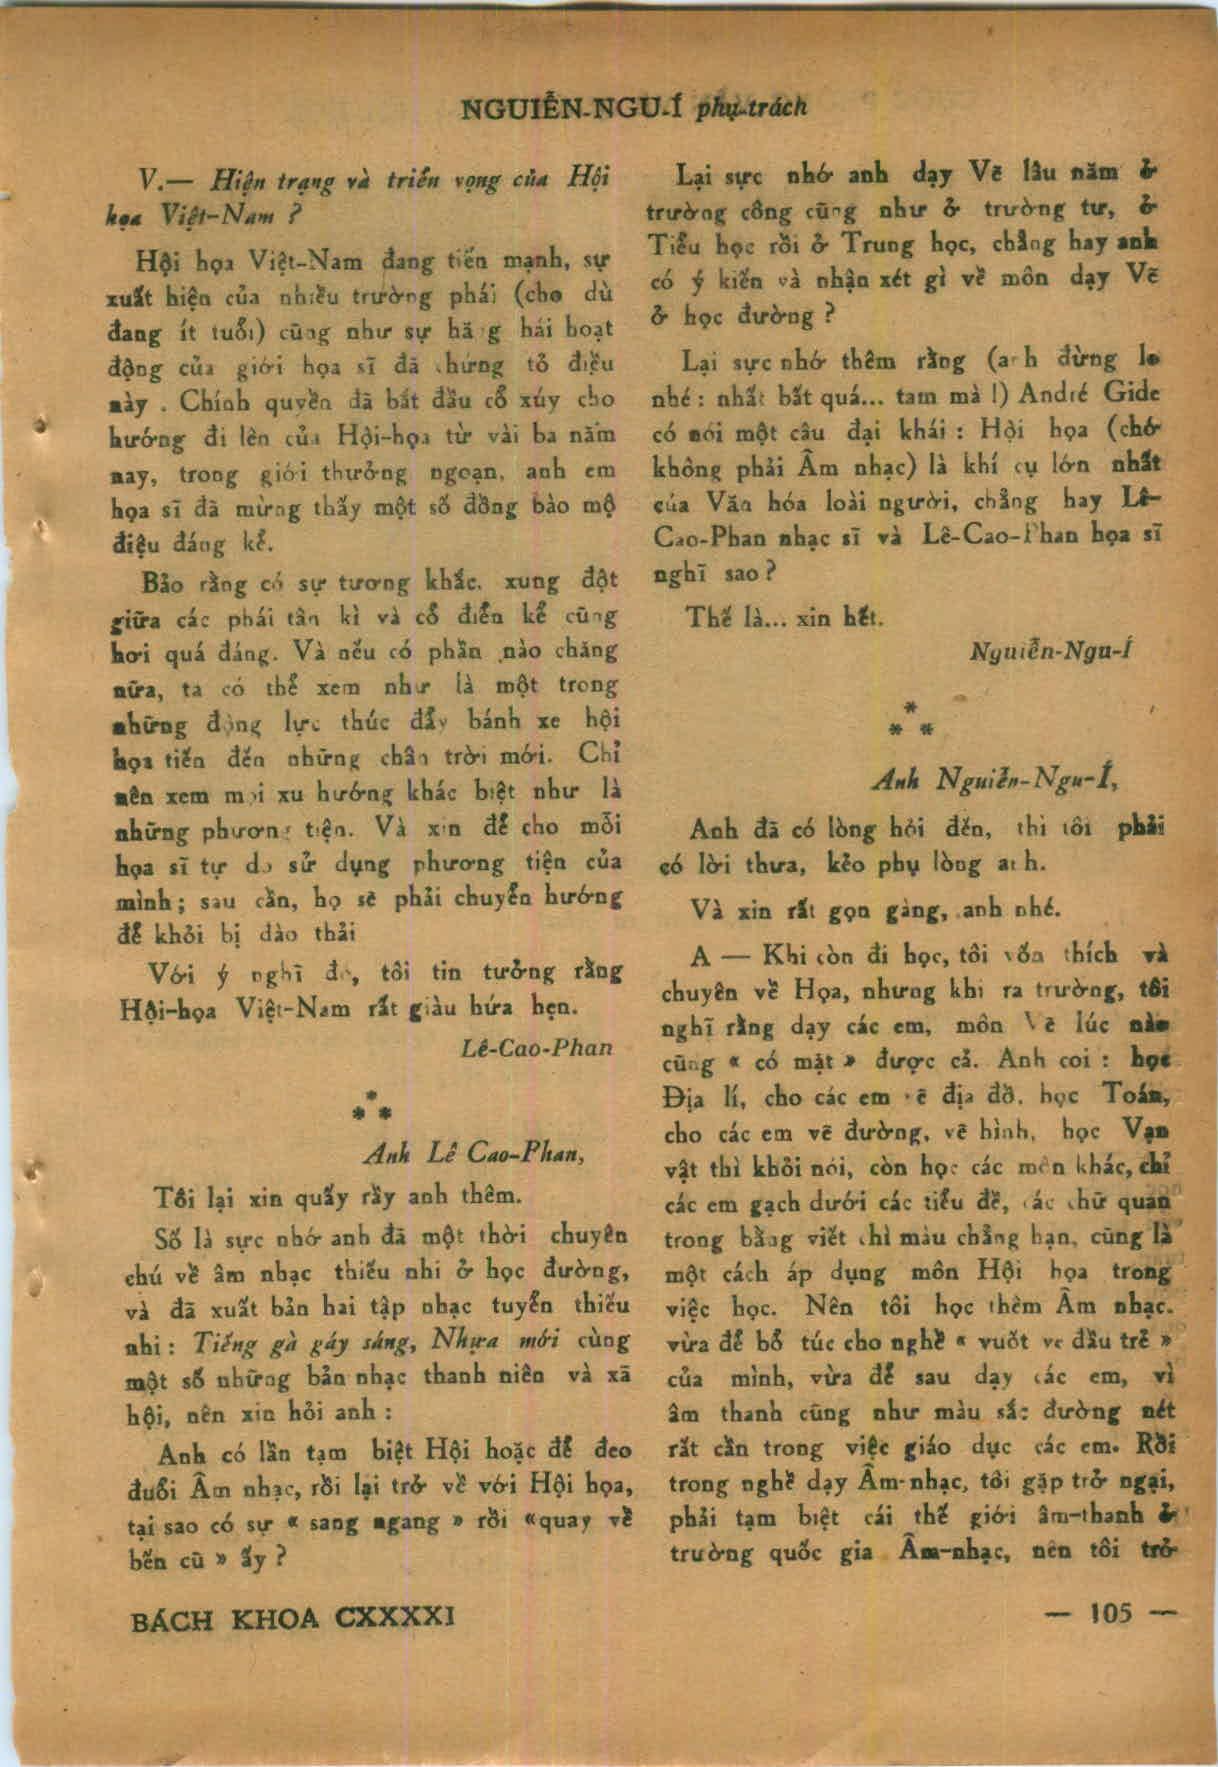 NGUIỄN-NGU-Í phụ-trách
V.— Hiện trạng và triển vọng của Hội
họa Việt-Nam ?
Hội họa Việt-Nam đang tiến mạnh, sự
xuất hiện của nhiều trường phái (cho dù
đang ít tuổi) cũng như sự hăng hái hoạt
động của giới họa sĩ đã chứng tỏ điều
này . Chính quyền đã bắt đầu cổ xúy cho
hướng đi lên của Hội-họa từ vài ba năm
nay, trong giới thưởng ngoạn, anh em
họa sĩ đã mừng thấy một số đồng bào mộ
điệu đáng kể.
Bảo rằng có sự tương khắc, xung đột
giữa các phái tân kì và cổ điển kể cũng
hơi quá đáng. Và nếu có phần nào chăng
nữa, ta có thể xem như là một trong
những động lực thúc đẩy bánh xe hội
họa tiến đến những chân trời mới. Chỉ
nên xem mọi xu hướng khác biệt như là
những phương tiện. Và xin để cho mỗi
họa sĩ tự do sử dụng phương tiện của
mình ; sau cần, họ sẽ phải chuyển hướng
để khỏi bị đào thải
Với ý nghĩ đó, tôi tin tưởng rằng
Hội-họa Việt-Nam rất giàu hứa hẹn.
Lê-Cao-Phan
*
* *
Anh Lê Cao-Phan,
Tôi lại xin quấy rầy anh thêm.
Số là sực nhớ anh đã một thời chuyên
chú về âm nhạc thiếu nhi ở học đường,
và đã xuất bản hai tập nhạc tuyển thiếu
nhi : Tiếng gà gáy sáng, Nhựa mới cùng
một số những bản nhạc thanh niên và xã
hội, nên xin hỏi anh :
Anh có lần tạm biệt Hội hoặc để đeo
đuổi Âm nhạc, rồi lại trở về với Hội họa,
tại sao có sự « sang ngang » rồi «quay về
bến cũ » ấy ?
Lại sực nhớ anh dạy Vẽ lâu năm ở
trường công cũng như ở trường tư, ở
Tiểu học rồi ở Trung học, chẳng hay anh
có ý kiến và nhận xét gì về môn dạy Vẽ
ở học đường ?
Lại sực nhớ thêm rằng (anh đừng lo
nhé : nhất bất quá... tam mà !) André Gide
có nói một câu đại khái : Hội họa (chớ
không phải Âm nhạc) là khí cụ lớn nhất
của Văn hóa loài người, chẳng hay Lê-
Cao-Phan nhạc sĩ và Lê-Cao-Phan họa sĩ
nghĩ sao ?
Thế là... xin hết.
Nguiễn-Ngu-Í
*
* *
Anh Nguiễn-Ngu-Í,
Anh đã có lòng hỏi đến, thì tôi phải
có lời thưa, kẻo phụ lòng anh.
Và xin rất gọn gàng, anh nhé.
A — Khi còn đi học, tôi vốn thích và
chuyên về Họa, nhưng khi ra trường, tôi
nghĩ rằng dạy các em, môn Vẽ lúc nào
cũng « có mặt » được cả. Anh coi : học
Địa lí, cho các em vẽ địa đồ, học Toán,
cho các em vẽ đường, vẽ hình, học Vạn
vật thì khỏi nói, còn học các môn khác, chỉ
các em gạch dưới các tiểu đề, các chữ quan
trong bằng viết chì màu chẳng hạn, cũng là
một cách áp dụng môn Hội họa trong
việc học. Nên tôi học thêm Âm nhạc.
vừa để bổ túc cho nghề « vuốt ve đầu trẻ »
của mình, vừa để sau dạy các em, vì
âm thanh cũng như màu sắc đường nét
rất cần trong việc giáo dục các em. Rồi
trong nghề dạy Âm-nhạc, tôi gặp trở ngại,
phải tạm biệt cái thế giới âm-thanh ở
trường quốc gia Âm-nhạc, nên tôi trở
BÁCH KHOA CXXXXI
— 105 —